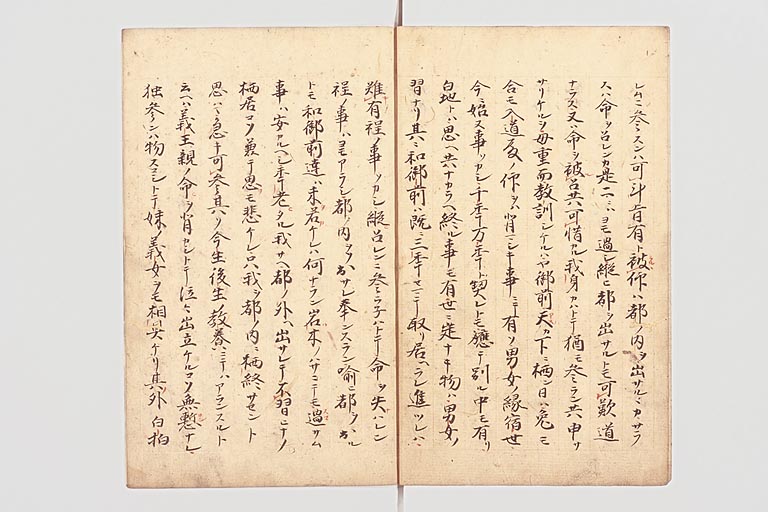 シニ参ラスンハ可斗旨有ト被仰ハ都ノ内ヲ出サルヽカサラ
スハ命ヲ召レンカ是二ニハヨモ過シ縦ヒ都ヲ出サルトモ可歎道
ナラス又命ヲ被召共可惜カル我身カハトテ猶モ参ラン共不申リ
サリケルヲ母重而教訓シケルハヤ御前天カ下ニ栖ン日ハ兎ニモ
角モ入道殿ノ仰ヲハ背マシキ事ニテ有ソ男女ノ縁宿世
今ニ始ヌ事ソカシ千年万年ト契レトモ軈テ別ル中モ有リ
白地トハ思ヘ共ナカラヘ終ル事モ有世ニ定ナキ物ハ男女ノ
習ナリ其ニ和御前ハ既三年マテ取リ居ラレ進ツレハ
難有程ノ事ソカシ縦召レンニ参ラネハトテ命ヲ失ハレン
程ノ事ハヨモアラシ都ノ内ヲソ出サレ奉ンスラン喩ヒ都ヲハ出ル
トモ和御前達ハ未若ケレハ何ナラン岩木ノハサマニテモ過サム
事ハ安カルヘシ年老タル我サヘ都ノ外ヘ出サレテ不習ヒナノ
栖居コソ兼テ思モ悲ケレ只我ヲ都ノ内ニ栖終サセント
思ハヽ急キ可参其ソ今生後生ノ教養ニテハアランスルト
云ヘハ義王親ノ命ヲ背カシトテ泣々出立ケルコソ無慙ナレ
独参ンハ物スシトテ妹ノ義女ヲモ相具ケリ其外白拍